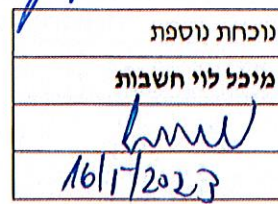 נוכחת נוספת
מיכל לוי חשבות
16/1/2023